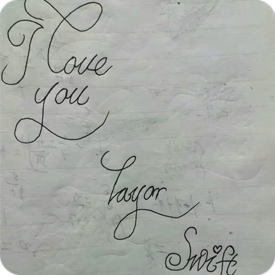 I love
you
Tayor
Swift